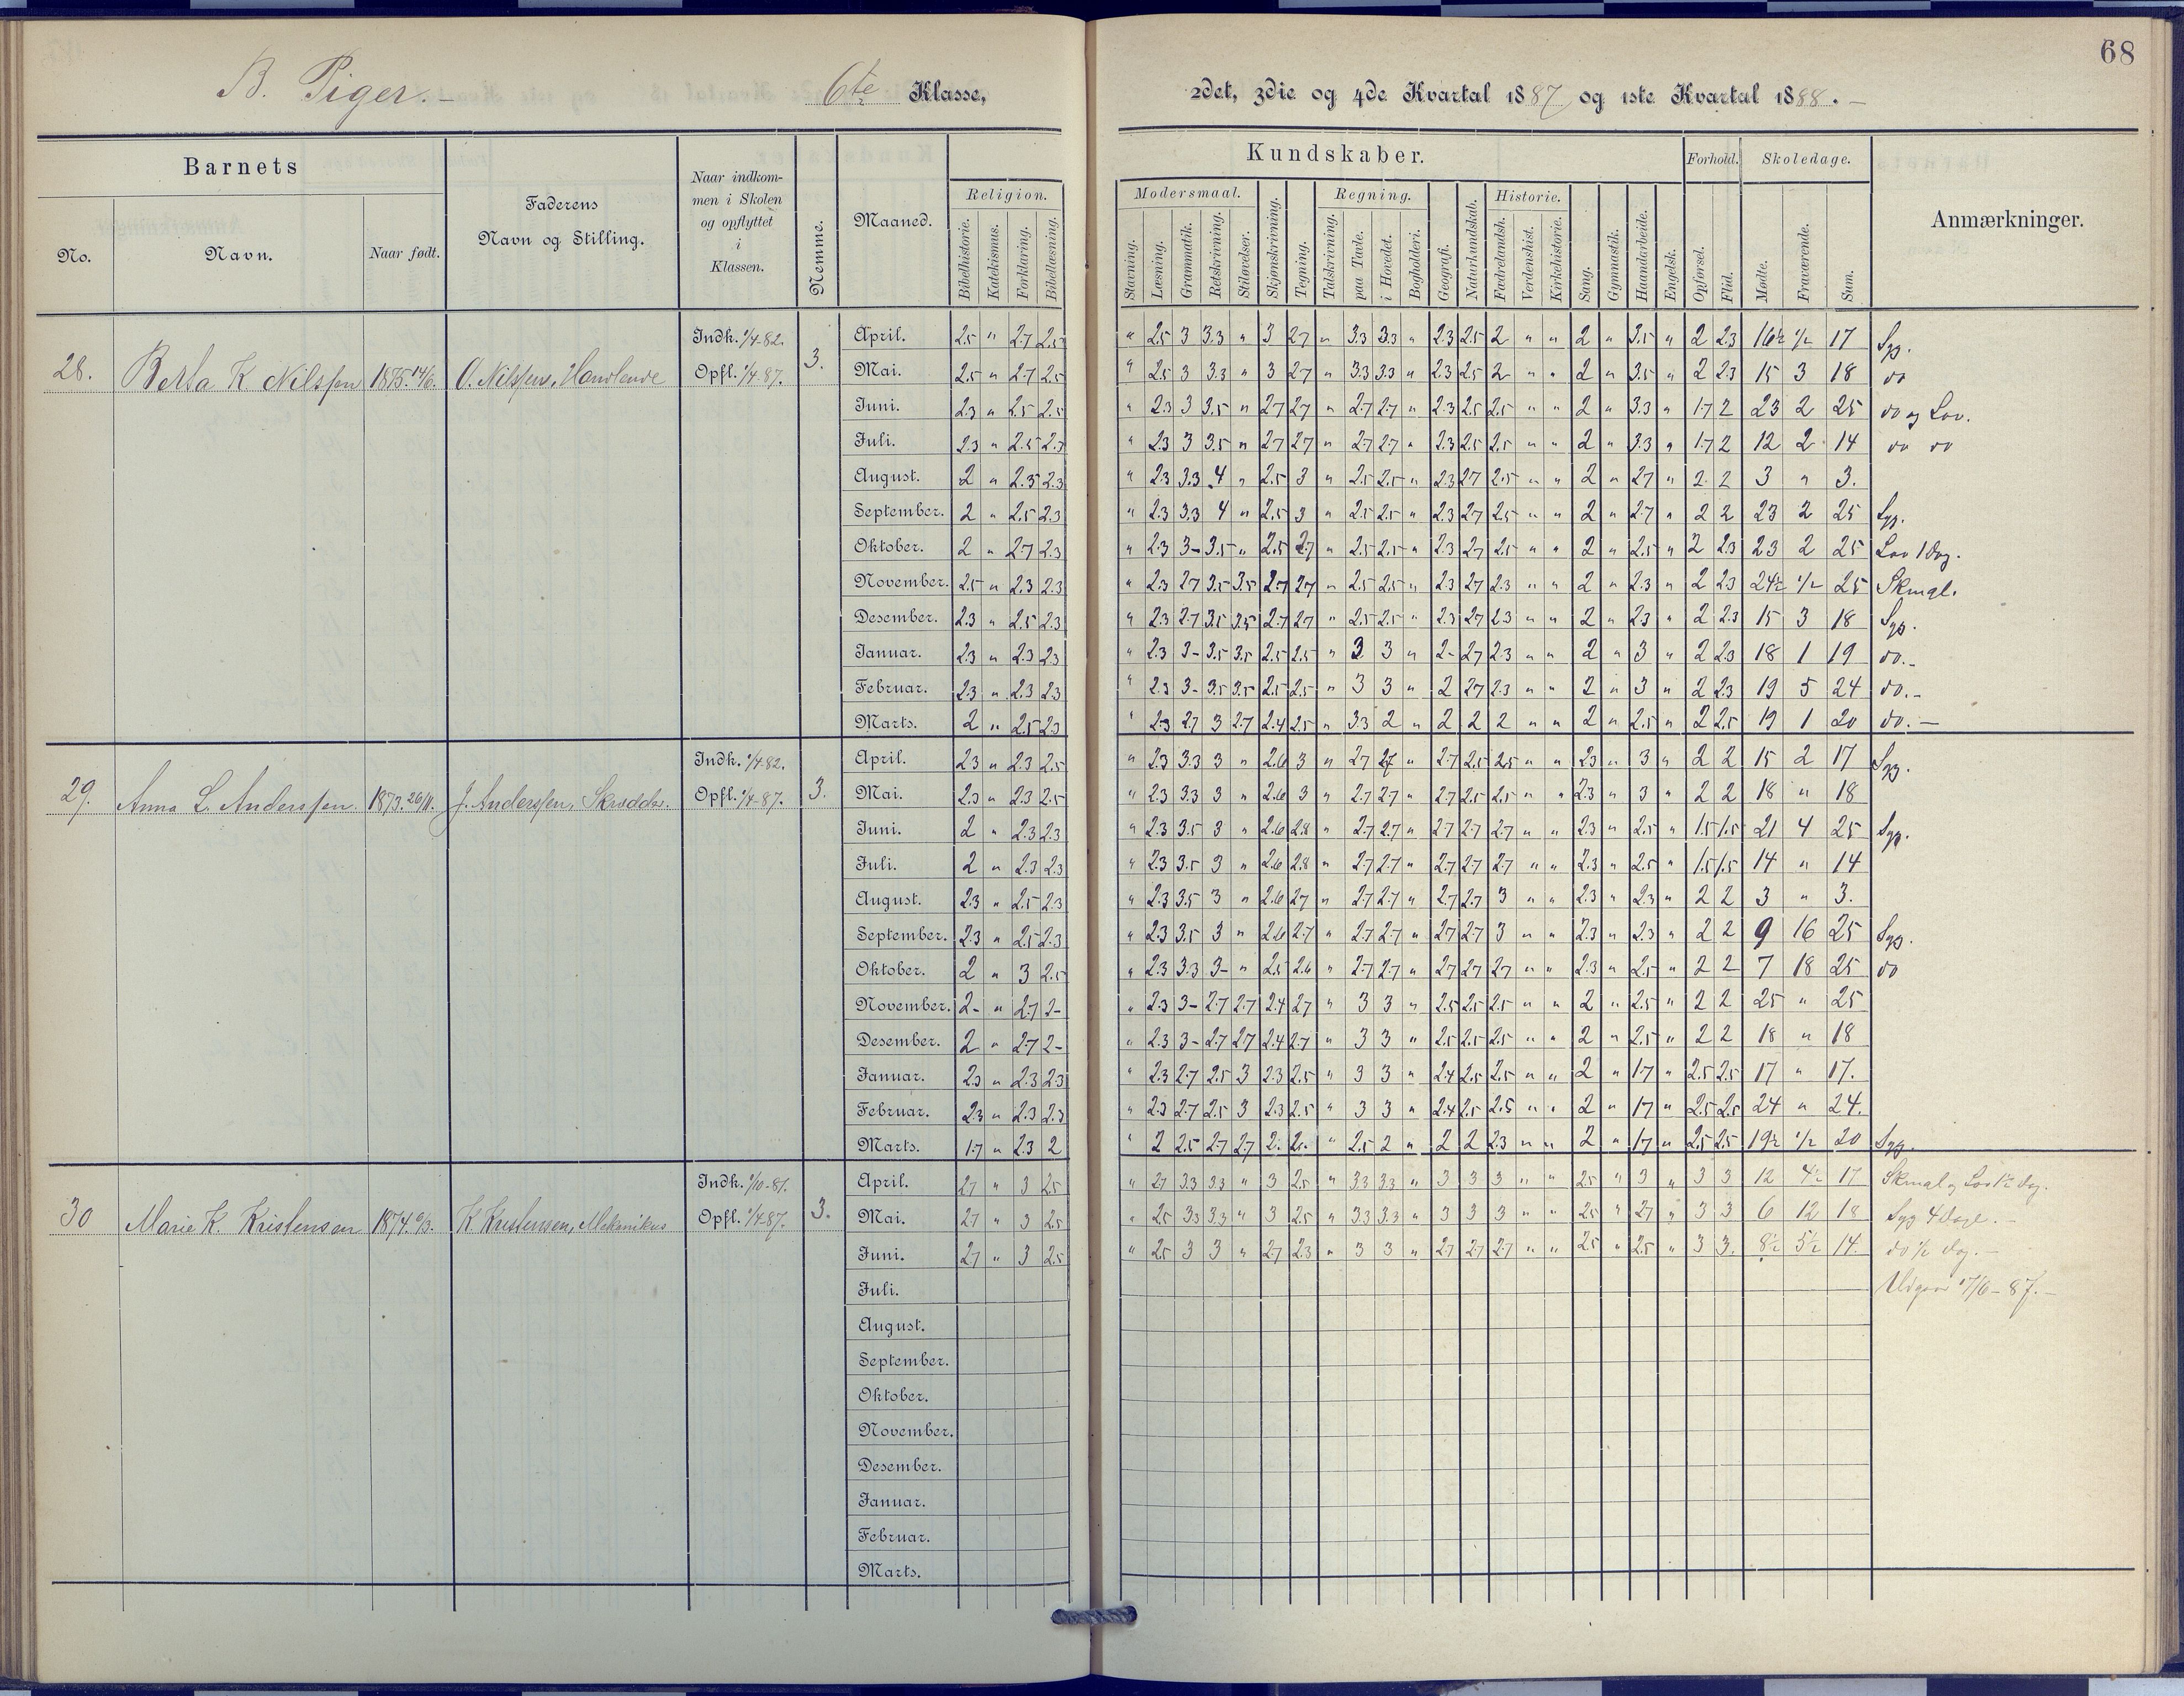 68
B. Piger. – 6te Klasse, 2det, 3die og 4de Kvartal 1887 og 1ste Kvartal 1888. –
Barnets
No.
Navn.
Naar født.
Faderens
Navn og Stilling.
Naar indkom-
men i Skolen
og opflyttet
i
Klassen.
Nemme.
Maaned.
Kundskaber.
Religion.
Bibelhistorie.
Katekismus.
Forklaring.
Bibellæsning.
Modersmaal.
Stavning.
Læsning.
Grammatik.
Retskrivning.
Stiløvelser.
Skjønskrivning.
Tegning.
Regning.
Talskrivning.
paa Tavle.
i Hovedet.
Bogholderi.
Geografi.
Naturkundskab.
Historie.
Fædrelandsh.
Verdenshist.
Kirkehistorie.
Sang.
Gymnastik.
Haandarbeide.
Engelsk.
Forhold.
Opførsel.
Flid.
Skoledage.
Mødte.
Fraværende.
Sum.
Anmærkninger.
28. Berta K Nilssen 1875 14/6. O. Nilssen, Handlende Indk. 1/4-82. Opfl. 1/4-87. 3.
April. 2.5 " 2.7 2.5 " 2.5 3 3.3 " 3 2.7 " 3.3 3.3 " 2.3 2.5 2 " " 2 " 3.5 " 2 2.3 16½ ½ 17 Syg.
Mai. 2.5 " 2.7 2.5 " 2.5 3 3.3 " 3 2.7 " 3.3 3.3 " 2.3 2.5 2 " " 2 " 3.5 " 2 2.3 15 3 18 do
Juni. 2.3 " 2.5 2.5 " 2.3 3 3.5 " 2.7 2.7 " 2.7 2.7 " 2.3 2.5 2.5 " " 2 " 3.3 " 1.7 2 23 2 25 do og Lov.
Juli. 2.3 " 2.5 2.3 " 2.3 3 3.5 " 2.7 2.7 " 2.7 2.7 " 2.3 2.5 2.5 " " 2 " 3.3 " 1.7 2 12 2 14 do do
August. 2 " 2.5 2.3 " 2.3 3.3 4 " 2.5 3 " 2.5 2.5 " 2.3 2.7 2.5 " " 2 " 2.7 " 2 2 3 " 3.
September. 2 " 2.5 2.3 " 2.3 3.3 4 " 2.5 3 " 2.5 2.5 " 2.3 2.7 2.5 " " 2 " 2.7 " 2 2 23 2 25 Syg.
Oktober. 2 " 2.7 2.3 " 2.3 3- 3.5 " 2.5 2.7 " 2.5 2.5 " 2.3 2.7 2.5 " " 2 " 2.5 " 2 2.3 23 2 25 Lov 1 dag.
November. 2.5 " 2.3 2.3 " 2.3 2.7 3.5 3.5 2.7 2.7 " 2.5 2.5 " 2.3 2.7 2.3 " " 2 " 2.3 " 2 2.3 24½ ½ 25 Skmgl.
Desember. 2.3 " 2.5 2.3 " 2.3 2.7 3.5 3.5 2.7 2.7 " 2.5 2.5 " 2.3 2.7 2.3 " " 2 " 2.3 " 2 2.3 15 3 18 Syg.
Januar. 2.3 " 2.3 2.3 " 2.3 3- 3.5 3.5 2.5 2.5 " 3 3 " 2- 2.7 2.3 " " 2 " 3 " 2 2.3 18 1 19 do.-
Februar. 2.3 " 2.3 2.3 " 2.3 3- 3.5 3.5 2.5 2.5 " 3 3 " 2 2.7 2.3 " " 2 " 3 " 2 2.3 19 5 24 do.-
Marts. 2 " 2.5 2.3 " 2.3 2.7 3 2.7 2.4 2.5 " 3.3 2 " 2 2 2 " " 2 " 2.5 " 2 2.5 19 1 20 do.—
29. Anna L. Anderssen. 1873. 26/11. J. Anderssen, Skrædder. Indk. 1/4-82. Opfl. 1/4-87. 3.
April. 2.3 " 2.3 2.5 " 2.3 3.3 3 " 2.6 3 " 2.7 2.7 " 2.7 2.5 2.5 " " 2.3 " 3 " 2 2 15 2 17 Syg.
Mai. 2.3 " 2.3 2.5 " 2.3 3.3 3 " 2.6 3 " 2.7 2.7 " 2.7 2.5 2.5 " " 2.3 " 3 " 2 2 18 " 18
Juni. 2 " 2.3 2.3 " 2.3 3.5 3 " 2.6 2.8 " 2.7 2.7 " 2.7 2.7 2.7 " " 2.3 " 2.5 " 1.5 1.5 21 4 25 Syg.
Juli. 2 " 2.3 2.3 " 2.3 3.5 3 " 2.6 2.8 " 2.7 2.7 " 2.7 2.7 2.7 " " 2.3 " 2.5 " 1.5 1.5 14 " 14
August. 2.3 " 2.5 2.3 " 2.3 3.5 3 " 2.6 2.7 " 2.7 2.7 " 2.7 2.7 3 " " 2.3 " 2.3 " 2 2 3 " 3.
September. 2.3 " 2.5 2.3 " 2.3 3.5 3 " 2.6 2.7 " 2.7 2.7 " 2.7 2.7 3 " " 2.3 " 2.3 " 2 2 9 16 25 Syg.
Oktober. 2 " 3 2.5 " 2.3 3.3 3- " 2.5 2.6 " 2.7 2.7 " 2.7 2.7 2.7 " " 2.3 " 2.5 " 2 2 7 18 25 do
November. 2- " 2.7 2- " 2.3 3- 2.7 2.7 2.4 2.7 " 3 3 " 2.5 2.5 2.5 " " 2 " 2.5 " 2 2 25 " 25
Desember. 2 " 2.7 2- " 2.3 3- 2.7 2.7 2.4 2.7 " 3 3 " 2.5 2.5 2.5 " " 2 " 2.5 " 2 2 18 " 18
Januar. 2.3 " 2.3 2.3 " 2.3 2.7 2.5 3 2.3 2.5 " 3 3 " 2.4 2.5 2.5 " " 2 " 1.7 " 2.5 2.5 17 " 17.
Februar. 2.3 " 2.3 2.3 " 2.3 2.7 2.5 3 2.3 2.5 " 3 3 " 2.4 2.5 2.5 " " 2 " 1.7 " 2.5 2.5 24 " 24.
Marts. 1.7 " 2.3 2 " 2 2.5 2.7 2.7 2. 2. " 2.5 2 " 2 2 2.3 " " 2 " 1.7 " 2.5 2.5 19½ ½ 20 Syg.
30 Marie K. Kristensen 1874. 6/3. K. Kristensen, Mekanikus Indk. 1/10-81. Opfl. 1/4-87. 3.
April. 2.7 " 3 2.5 " 2.7 3.3 3.3 " 3 2.5 " 3.3 3.3 " 3 3 3 " " 2.5 " 3 " 3 3 12 4½ 17 Skmgl og Lov 1½ dag.
Mai. 2.7 " 3 2.5 " 2.5 3.3 3.3 " 3 2.5 " 3.3 3.3 " 3 3 3 " " 2.5 " 2.7 " 3 3 6 12 18 Syg 4 dage. –
Juni. 2.7 " 3 2.5 " 2.5 3 3 " 2.7 2.3 " 3 3 " 2.7 2.7 2.7 " " 2.5 " 2.5 " 3 3. 8½ 5½ 14. do ½ dag.
Juli. 17/6-87. –
August.
September.
Oktober.
November.
Desember.
Januar.
Februar.
Marts.